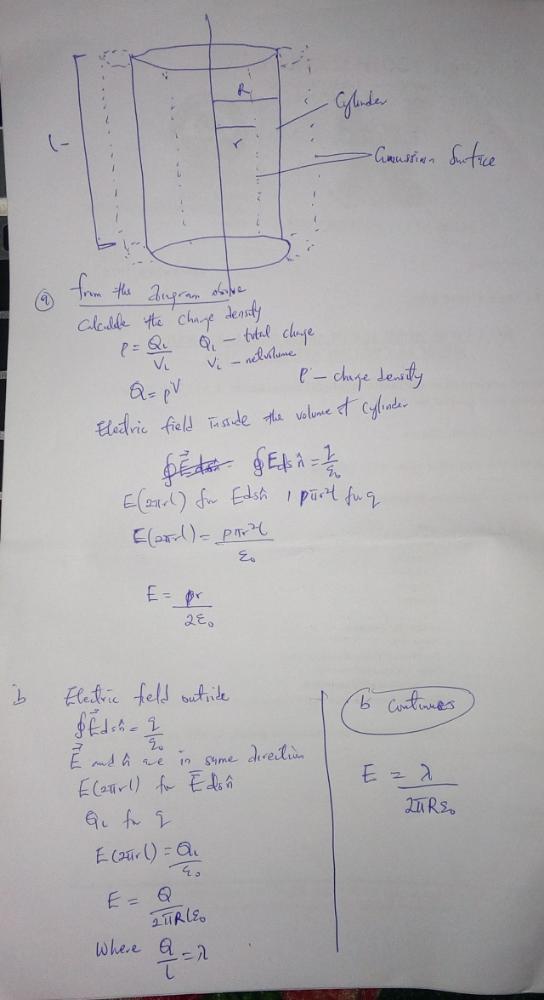 R
Cylinder
r
Gaussian Surface
(a) from the diagram above
Calculate the charge density
ρ = Q₁/V₁ Q₁ – total charge
V₁ – net volume
Q = ρV ρ – charge density
Electric field inside the volume of cylinder
∮E ds n̂ = q/ε₀
E(2πrl) for E ds n̂, ρπr²l for q
E(2πrl) = ρπr²l/ε₀
E = ρr/2ε₀
b Electric field outside
∮E⃗ ds n̂ = q/ε₀
E⃗ and n̂ are in same direction
E(2πrl) for E⃗ ds n̂
Q₁ for q
E(2πrl) = Q₁/ε₀
E = Q/2πRlε₀
Where Q/l = λ
b continues
E = λ/2πRε₀